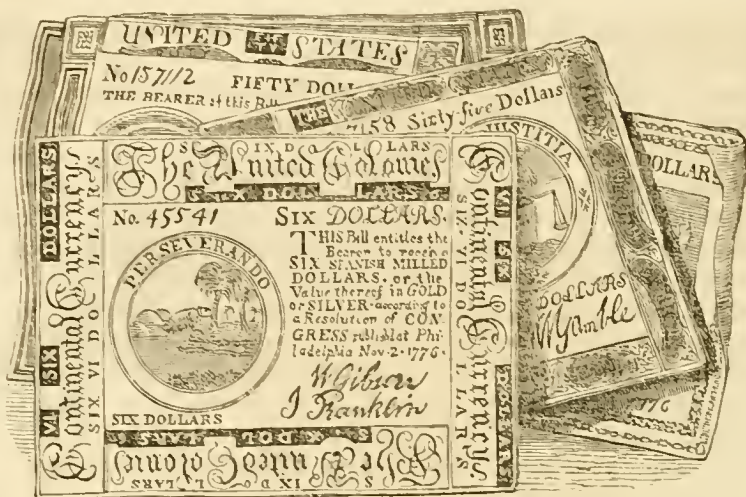 UNITED STATES
No 157112 FIFTY DOL
THE BEARER of this Bill
THE
7158 Sixty-five Dollars
JUSTITIA
DOLLARS
DOLLARS
W Gamble
1776
SIX DOLLARS
The United Colonies
SIX DOLLARS
No. 45541 SIX DOLLARS.
THIS Bill entitles the
Bearer to receive
SIX SPANISH MILLED
DOLLARS, or the
Value thereof in GOLD
or SILVER according to
a Resolution of CON-
GRESS publish'd at Phi-
ladelphia Nov. 2. 1776.
PERSEVERANDO
W Gibson
J Franklin
SIX DOLLARS
VI SIX DOLLARS
Continental Currency
SIX VI DOLLARS
Continental Currency
SIX VI DOLLARS
SIX DOLLARS
The United Colonies
SIX DOLLARS